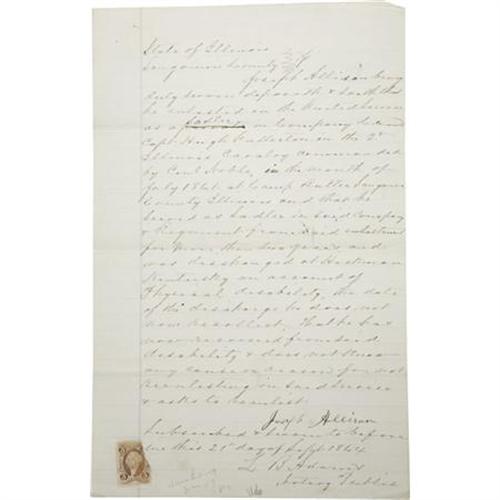 State of Illinois
Sangamon County
Joseph Allison being
duly sworn deposeth & saith that
he enlisted in the United
sadler
as a in Company
Capt Hugh Fullerton in the 2d
Illinois Cavalry commanded
by Coln Noble, in the month of
July 1861 at Camp Butler Sangamon
County Illinois and that he
served as sadler in said Company
& Regiment from said enlistment
for more than two years and
was discharged at Hickman
Kentucky on account of
Physical disability, the date
of the discharge he does not
now recollect. That he has
now recovered from said
disability & does not know
any cause or reason for not
reenlisting in said service
& asks to reenlist.
Joseph Allison
Subscribed & sworn to before
me this 21st day of Sept 1864
B Adams
Notary Public